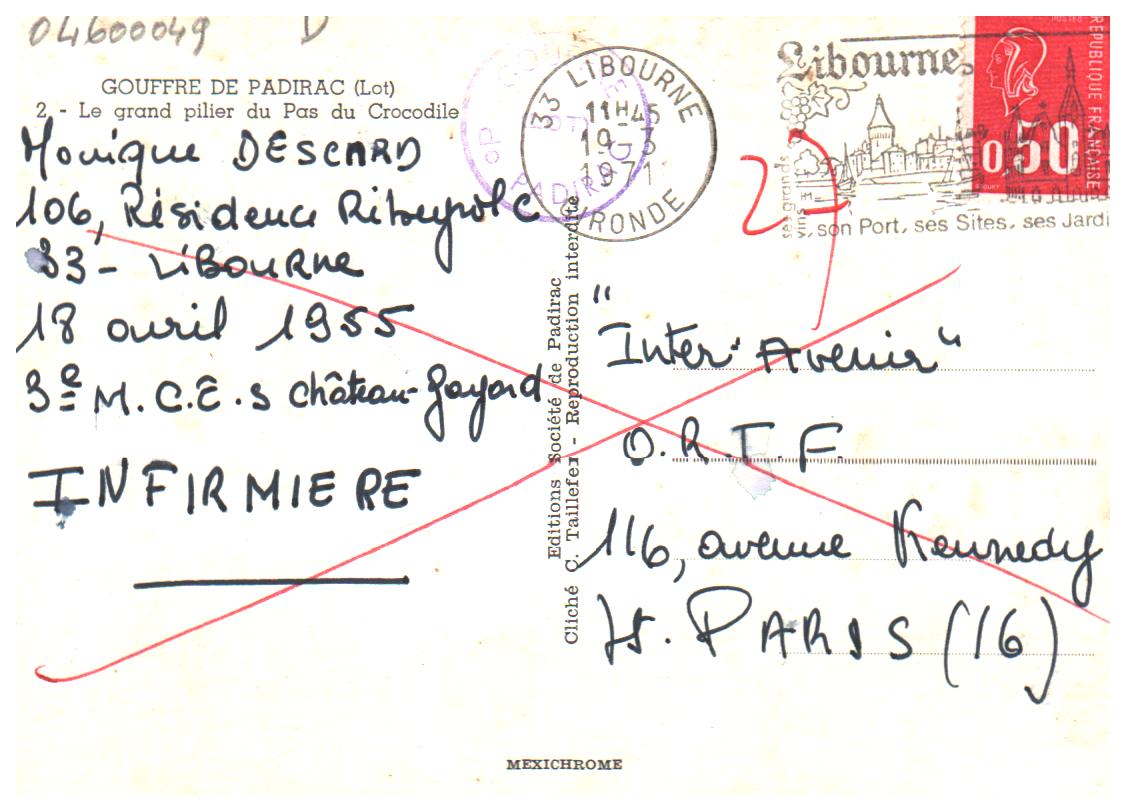 04600049 D
GOUFFRE DE PADIRAC (Lot)
2. - Le grand pilier du Pas du Crocodile
Monique DESCARD
106, Résidence Ribeyrolc
33 - LIBOURNE
18 avril 1955
3e M.C.E.S Château-Gayard
INFIRMIERE
Editions Société de Padirac
Cliché C. Taillefer - Reproduction interdite
33 LIBOURNE
11H45
19-3
1971
GIRONDE
PADIRAC
Libourne
ses grands
vins
son Port, ses Sites, ses Jardi
POSTES
REPUBLIQUE FRANÇAISE
0,50
27
"Inter-Avenir"
O.R.T.F.
116, avenue Kennedy
75. PARIS (16)
MEXICHROME